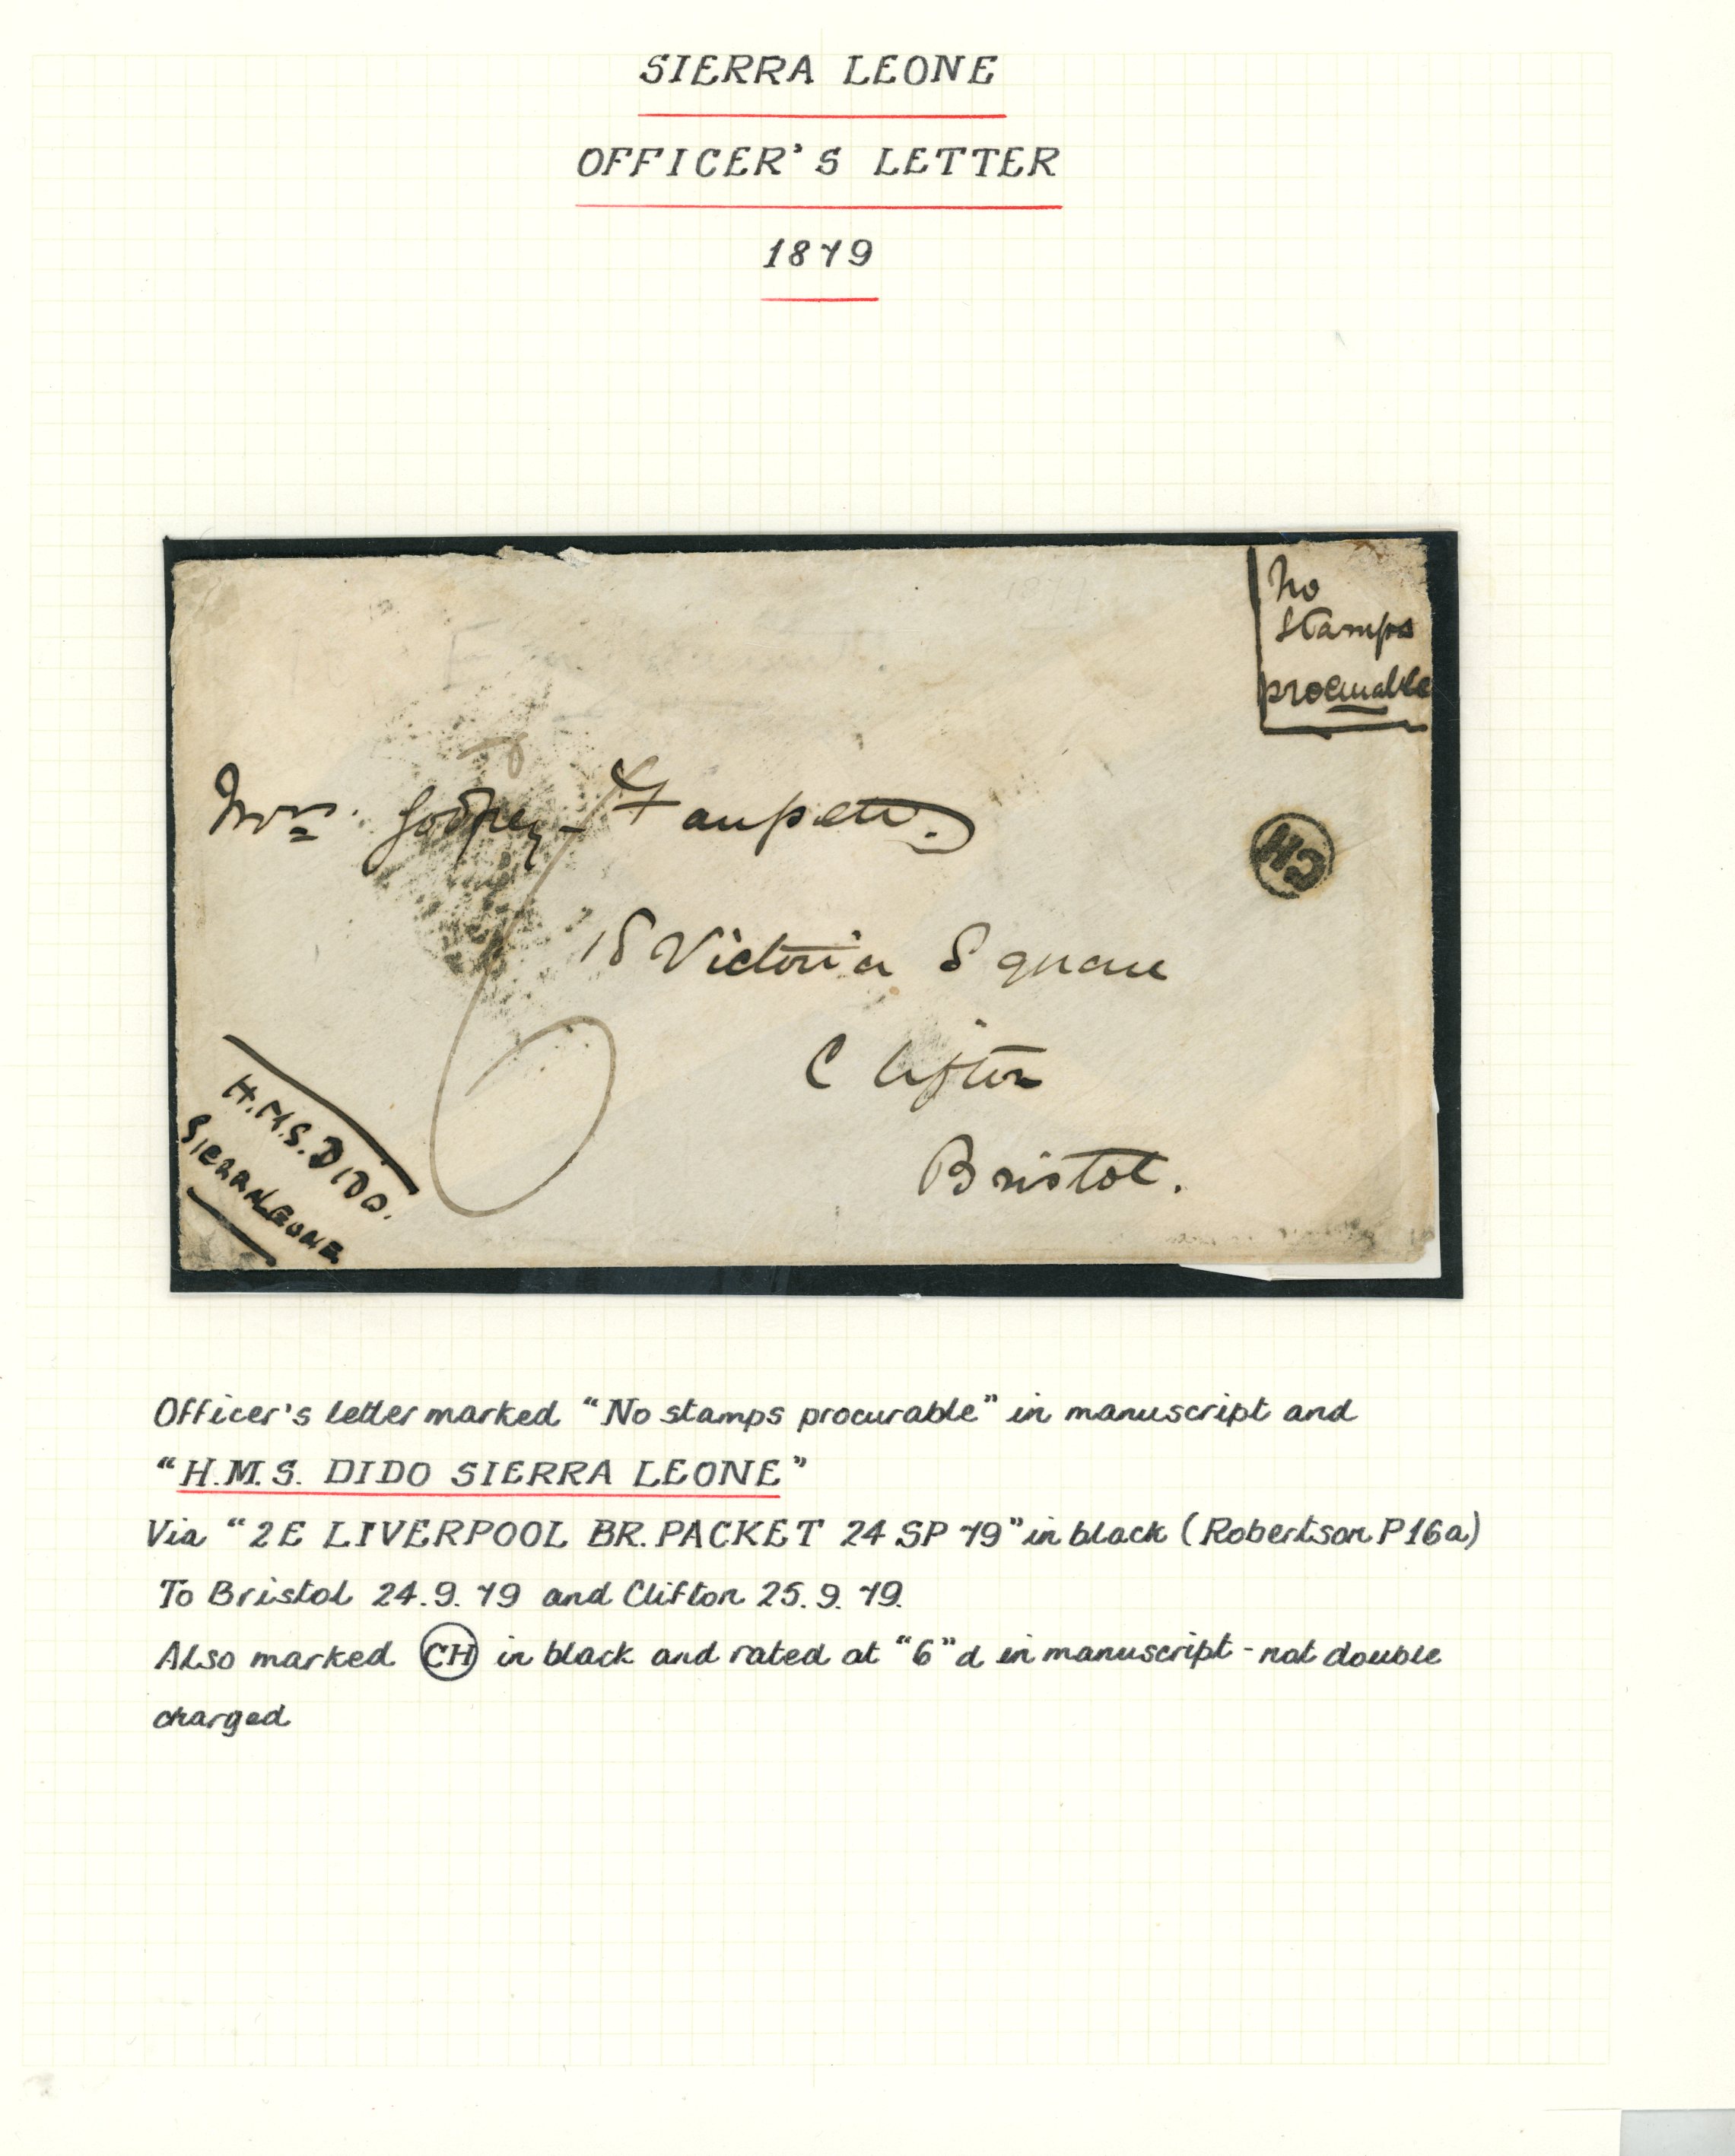 SIERRA LEONE
OFFICER'S LETTER
1879
No
stamps
procurable
Mrs. Godfrey-Faussett.
CH
18 Victoria Square
Clifton
Bristol.
6
H.M.S. DIDO.
SIERRA LEONE
Officer's letter marked "No stamps procurable" in manuscript and
"H.M.S. DIDO SIERRA LEONE"
Via "2E LIVERPOOL BR. PACKET 24 SP 79" in black (Robertson P16a)
To Bristol 24.9.79 and Clifton 25.9.79.
Also marked CH in black and rated at "6"d in manuscript - not double
charged